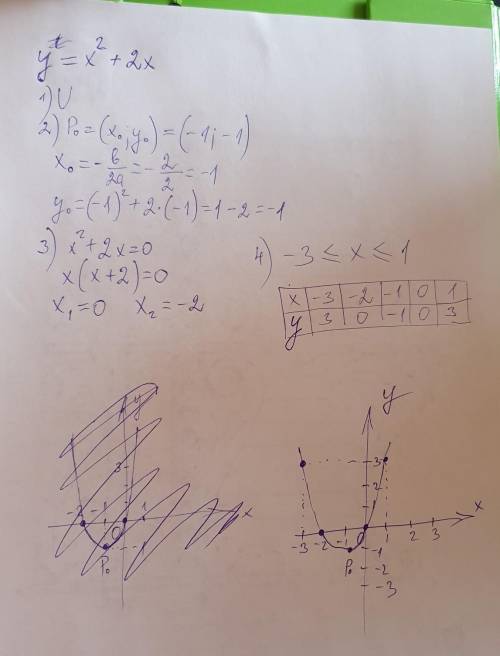 y = x² + 2x
1) U
2) P₀ = (x₀; y₀) = (-1; -1)
x₀ = -b/2a = -2/2 = -1
y₀ = (-1)² + 2·(-1) = 1 - 2 = -1
3) x² + 2x = 0
x(x+2) = 0
x₁ = 0 x₂ = -2
4) -3 ≤ x ≤ 1
x -3 -2 -1 0 1
y 3 0 -1 0 3
y
3
-2 -1 0 1 x
P₀ -1
y
3
2
-3 -2 -1 0 2 3 x
P₀ -1
-2
-3